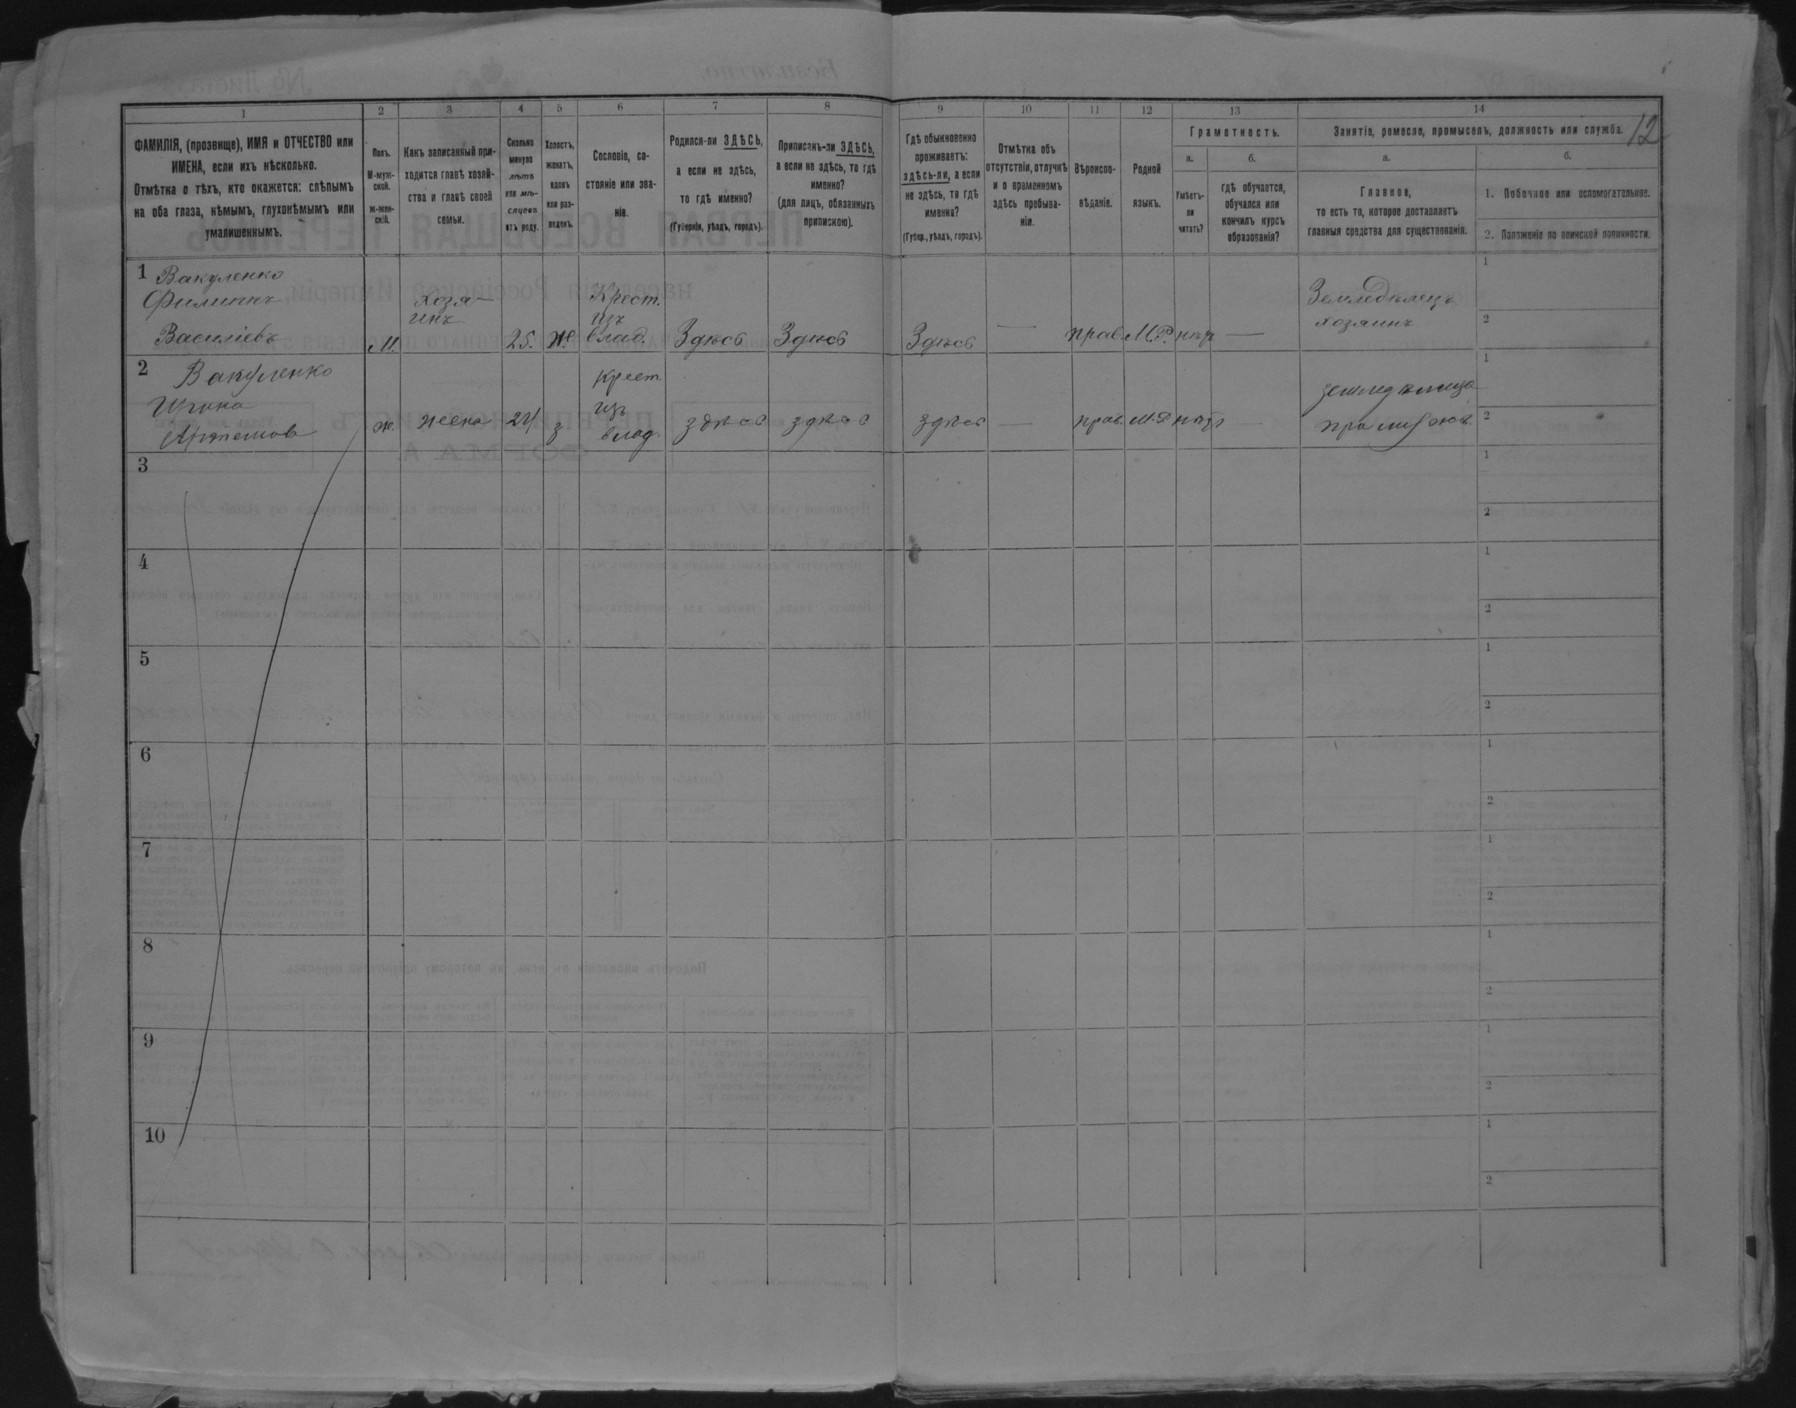 12
1 2 3 4 5 6 7 8 9 10 11 12 13 14
ФАМИЛІЯ, (прозвище), ИМЯ и ОТЧЕСТВО или
ИМЕНА, если ихъ нѣсколько.
Отмѣтка о тѣхъ, кто окажется: слѣпымъ
на оба глаза, нѣмымъ, глухонѣмымъ или
умалишеннымъ.
Полъ.
М-муж-
ской.
Ж-жен-
скій.
Какъ записанный при-
ходится главѣ хозяй-
ства и главѣ своей
семьи.
Сколько
минуло
лѣтъ
или мѣ-
сяцевъ
отъ роду.
Холостъ,
женатъ,
вдовъ
или раз-
веденъ.
Сословіе, со-
стояніе или зва-
ніе.
Родился-ли ЗДѢСЬ,
а если не здѣсь,
то гдѣ именно?
(Губернія, уѣздъ, городъ).
Приписанъ-ли ЗДѢСЬ,
а если не здѣсь, то гдѣ
именно?
(для лицъ, обязанныхъ
припискою).
Гдѣ обыкновенно
проживаетъ:
здѣсь-ли, а если
не здѣсь, то гдѣ
именно?
(Губерн., уѣздъ, городъ).
Отмѣтка объ
отсутствіи, отлучкѣ
и о временномъ
здѣсь пребыва-
ніи.
Вѣроиспо-
вѣданіе.
Родной
языкъ.
Грамотность.
а.
Умѣетъ-
ли
читать?
б.
гдѣ обучается,
обучался или
кончилъ курсъ
образованія?
Занятіе, ремесло, промыселъ, должность или служба.
а.
Главное,
то есть то, которое доставляетъ
главныя средства для существованія.
б.
1. Побочное или вспомогательное.
2. Положеніе по воинской повинности.
1 Вакуленко
Филиппъ
Василіевъ
М.
хозя-
инъ
25.
Ж.
Крест.
изъ
влад.
Здѣсь
Здѣсь
Здѣсь
—
прав.
М.Р.
нѣт
—
Земледѣлецъ
хозяинъ
1
2
2 Вакуленко
ж.
жена
24
з
крест
из
влад
здѣсь
здѣсь
здѣсь
—
прав.
М.Р
нѣт
—
1
2
3
1
2
4
1
2
5
1
2
6
1
2
7
1
2
8
1
2
9
1
2
10
1
2